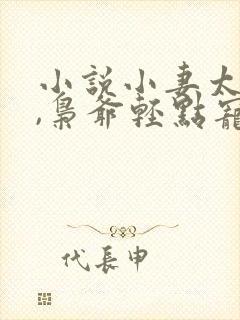 小說小妻太
,梟爺輕點寵
代長申